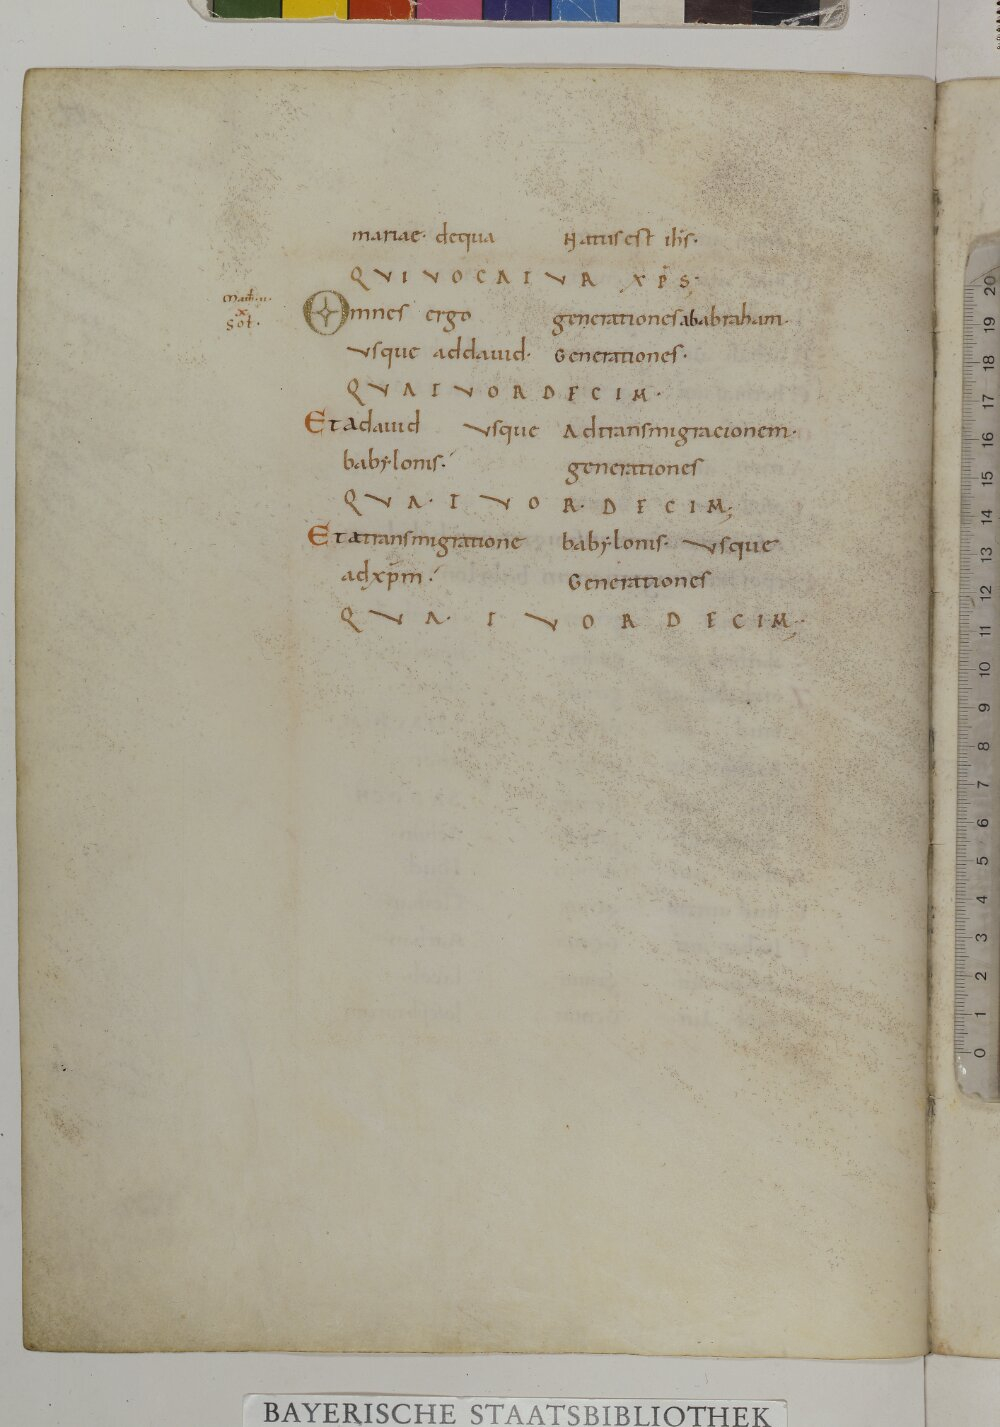 mariae· dequa Natus est ihs·
QVIVOCATVR xps·
Math·ii·
x
Sol·
Omnes ergo generationes ababraham·
usque addauid· Generationes·
QVATVORDECIM·
Et adauid usque Adtransmigracionem·
babylonis· generationes
QVA·TVOR·DECIM;
Et atransmigratione babylonis· usque
adxpm· Generationes
QVA·TVORDECIM·
0 1 2 3 4 5 6 7 8 9 10 11 12 13 14 15 16 17 18 19 20
BAYERISCHE STAATSBIBLIOTHEK